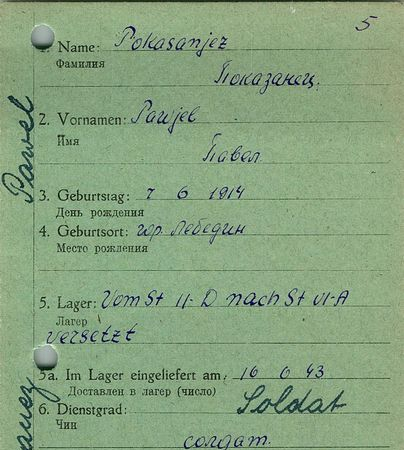 5
1. Name: Pokasanjez
Фамилия Показанец
2. Vornamen: Pawjel
Имя
Павел
3. Geburtstag: 7 6 1914
День рождения
4. Geburtsort: гор. Лебедин
Место рождения
5. Lager: Vom St II-D nach St VI-A
Лагерь
versetzt
5a. Im Lager eingeliefert am: 16 6 43
Доставлен в лагерь (число)
6. Dienstgrad: Soldat
Чин
солдат.
Pawel